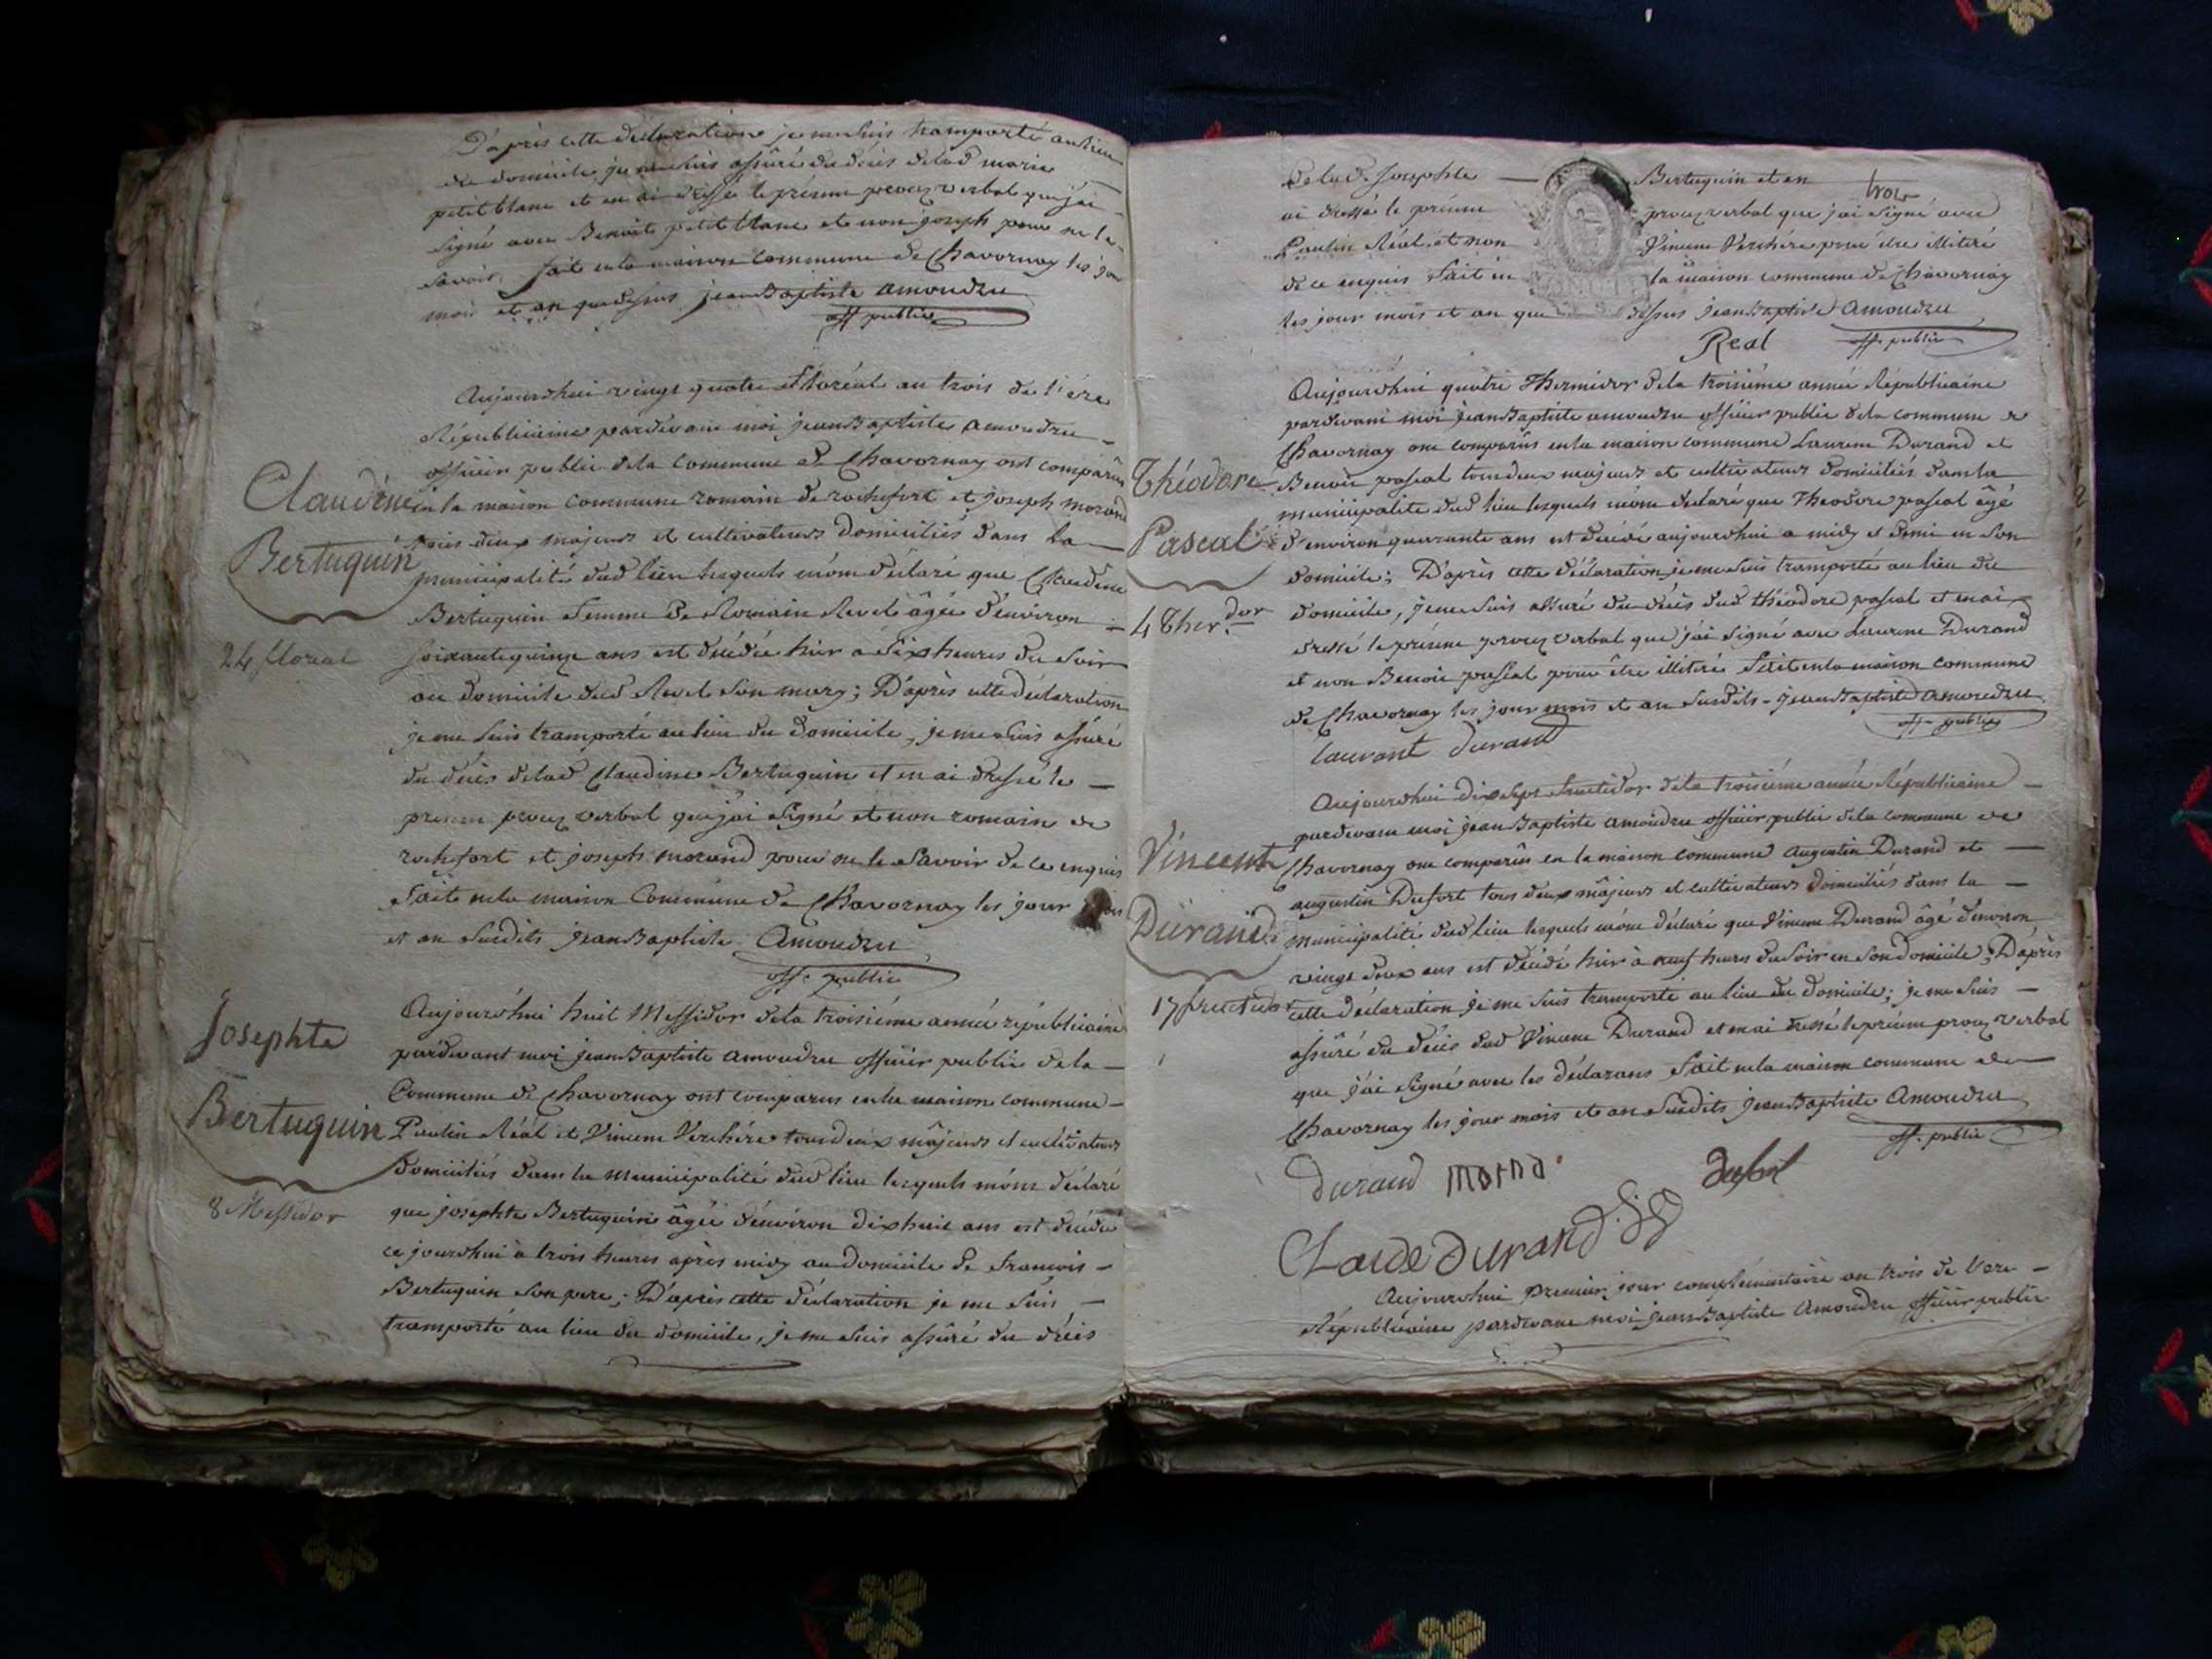 D'après cette déclaration je me suis transporté au lieu
du domicile je me suis assûré du décès de lad marie
petitblanc et en ai dressé le présent procez verbal que j'ai
signé avec Benoit petitblanc et non joseph pour ne le
savoir, fait en la maison commune de Chavornay les jour
mois et an que dessus jean Baptiste Amoudru
off public
Aujourdhui vingt quatre floréal an trois de l'ére
Républicaine pardevant moi jean Baptiste Amoudru
officier public de la Commune de Chavornay ont comparûs
Claudine en la maison commune romain de rochefort et joseph morand
Bertuquin tous deux majeurs et cultivateurs Domiciliés dans la
municipalité dud lieu lesquels m'ont déclaré que Claudine
Bertuquin femme De Romain Revel âgée d'environ
24 floreal soixantequinze ans est décédée hier à dix heures du soir
au domicile dud Revel son mary; D'après cette déclaration
je me suis transporté au lieu du domicile, je me suis assuré
du décès de lad Claudine Bertuquin et en ai dressé le
présent procez verbal que j'ai signé et non romain de
rochefort et joseph morand pour ne le savoir de ce enquis
fait en la maison Commune de Chavornay les jour mois
et an susdits jean Baptiste Amoudru
off. public
Aujourd'hui huit Messidor de la troisiéme année républicaine
Josephte pardevant moi jean Baptiste Amoudru officier public de la
Commune de Chavornay ont comparus en la maison commune
Bertuquin Paulin Réal et Vincent Verchére tous deux mâjeurs et cultivateurs
domiciliés dans la municipalité dud lieu lesquels m'ónt déclaré
8 Messidor que josephte Bertuquin âgée d'environ dixhuit ans est décédée
ce jourdhui à trois heures après midy au domicile de francois
Bertuquin son pere; D'après cette déclaration je me suis
transporté au lieu du domicile, je me suis assûré du décès
de lad. Josephte Bertuquin et en
ai dressé le présent procez verbal que j'ai signé avec
Paulin Réal et non Vincent Verchére pour être illitéré
de ce enquis fait en la maison commune de Chavornay
les jour mois et an que dessus jean Baptiste Amoudru
Real off. public
Aujourdhui quatre Thermidor de la troisiéme année Républicaine
pardevant moi jean Baptiste amoudru officier public de la commune de
Chavornay ont comparûs en la maison commune Laurent Durand et
Théodore Benoit pascal tous deux majeurs et cultivateurs domiciliés dans la
municipalité dud lieu lesquels m'ont déclaré que Theodore pascal âgé
Pascal d'environ quarante ans est décédé aujourdhui a midy et demi en son
domicile; D'après cette déclaration je me suis transporté au lieu du
4 Therdor domicile, je me suis assuré du décès dud théodore pascal et en ai
dressé le présent procez verbal que j'ai signé avec Laurent Durand
et non Benoit pascal pour être illitéré fait en la maison commune
de Chavornay les jour mois et an susdits - jean Baptiste Amoudru
off. public
laurant durand
Aujourdhui dix sept fructidor de la troisiéme année Républicaine
pardevant moi jean Baptiste Amoudru officier public de la commune de
Vincent Chavornay ont comparûs en la maison commune Augustin Durand et
augustin Dufort tous deux mâjeurs et cultivateurs domiciliés dans la
Durand municipalité dud lieu lesquels m'ont déclaré que Vincent Durand âgé d'environ
vingt deux ans est décédé hier à neuf heures du soir en son domicile; D'après
17 fructidor cette déclaration je me suis transporté au lieu du domicile; je me suis
assûré du décès dud Vincent Durand et en ai dressé le présent procez verbal
que j'ai signé avec les déclarans fait en la maison commune de
Chavornay les jour mois et an susdits jean Baptiste Amoudru
off. public
durand dufort
Claude durand
Aujourdhui premier jour complémentaire an trois de l'ere
Républicaine pardevant moi jean Baptiste Amoudru officier public